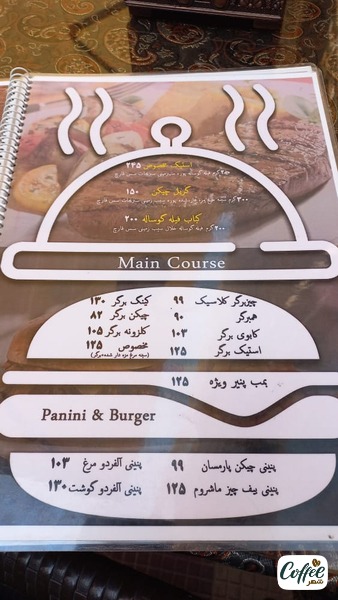 استیک مخصوص ۲۴۵
گریل چیکن ۱۵۰
کباب فیله گوساله ۲۰۰
۲۰۰ گرم فیله گوساله خلال سیب زمینی سس قارچ
Main Course
چیزبرگر کلاسیک ۹۹ کینگ برگر ۱۳۰
همبرگر ۹۰ چیکن برگر ۸۲
کابوی برگر ۱۰۳ کلزونه برگر ۱۰۵
استیک برگر ۱۲۵ مخصوص ۱۲۵
بمب پنیر ویژه ۱۲۵
Panini & Burger
پنینی چیکن پارمسان ۹۹ پنینی آلفردو مرغ ۱۰۳
پنینی بیف چیز ماشروم ۱۲۵ پنینی آلفردو گوشت ۱۳۰
Coffee
شهر